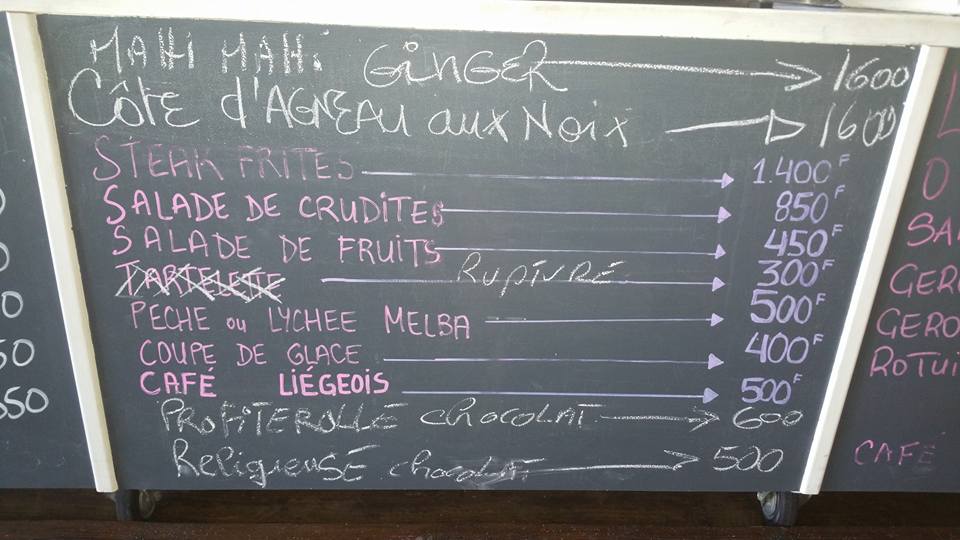 MAHI MAHI GINGER 1600
Côte d'AGNEAU aux Noix 1600
STEAK FRITES 1.400F
SALADE DE CRUDITES 850F
SALADE DE FRUITS 450F
TARTELETTE RUPTURE 300F
PÉCHE ou LYCHEE MELBA 500F
COUPE DE GLACE 400F
CAFÉ LIÉGEOIS 500F
PROFITEROLLE chocolat 600
ReligieusE chocolat 500
CAFÉ